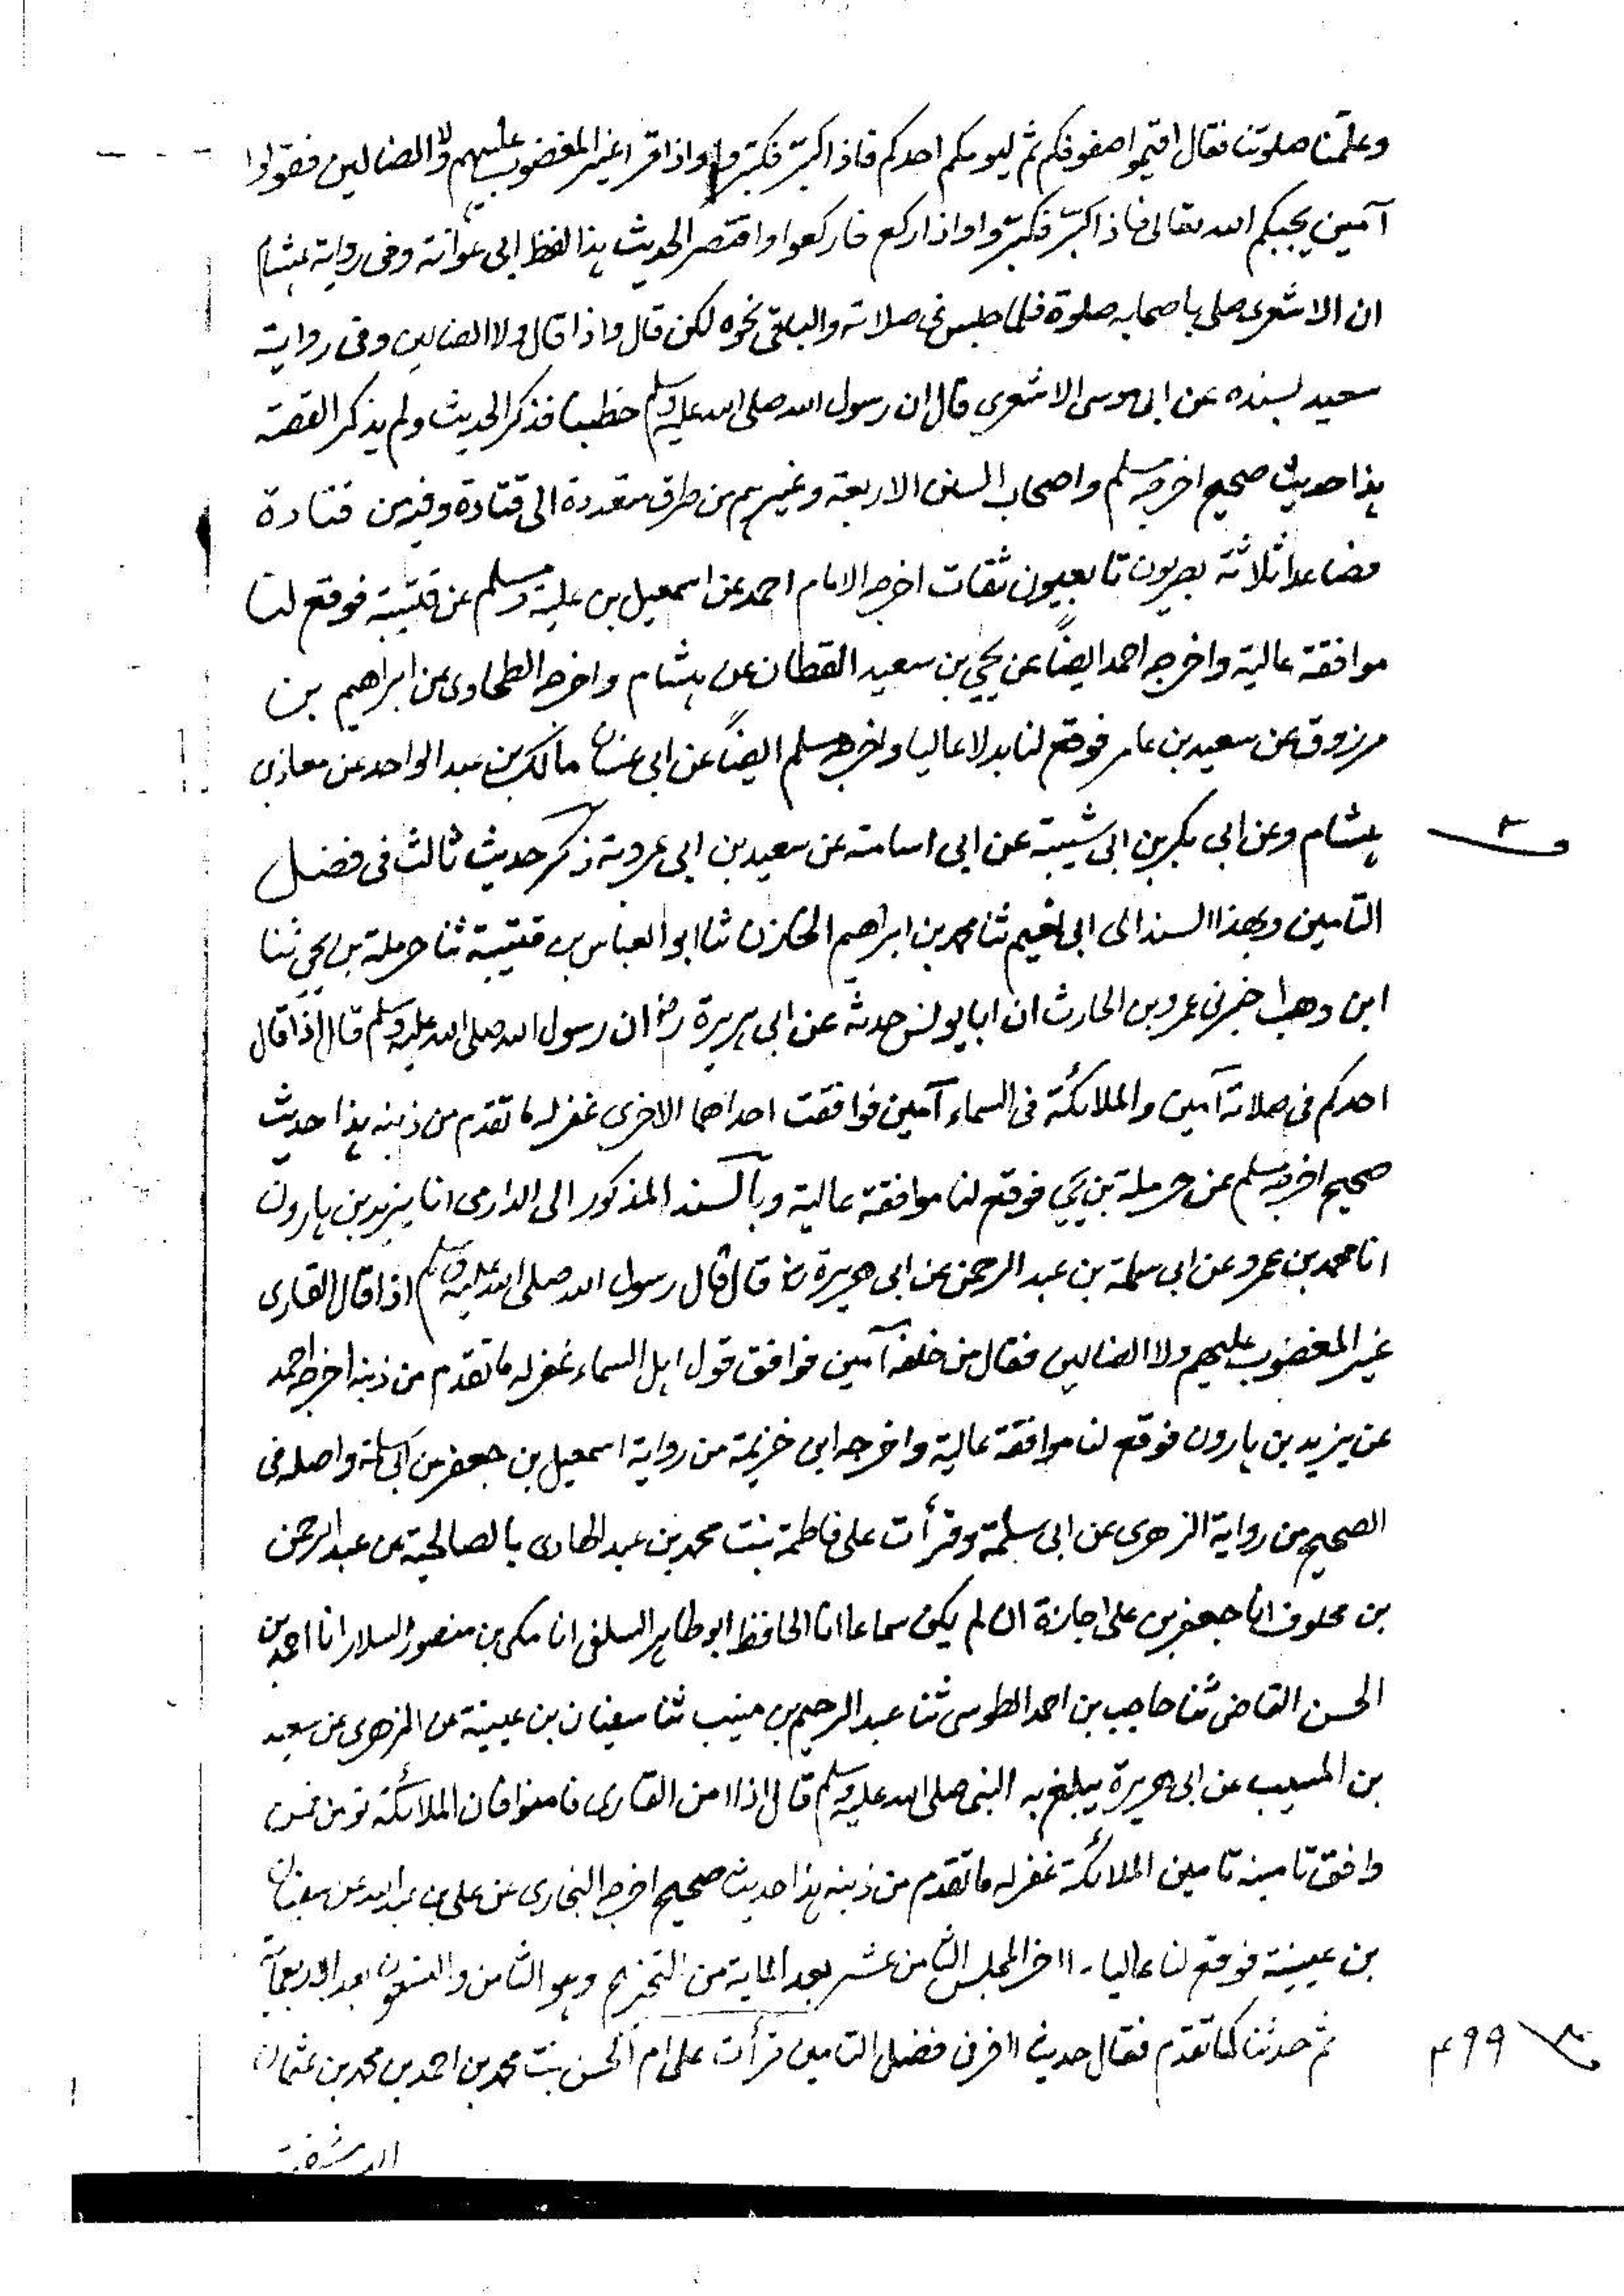 وعلمنا صلوتنا فقال اقيموا صفوفكم ثم ليومكم احدكم فاذا كبر فكبروا واذا قرا غير المغضوب عليهم ولا الضالين فقولوا
آمين يجبكم الله تعالى فاذا كبر فكبروا واذا ركع فاركعوا واقتصر الحديث هذا لفظ ابى عوانة وفى رواية هشام
ان الاشعرى صلى باصحابه صلوة فلما جلس فى صلاته والباقى نحوه لكن قال واذا قال ولا الضالين وفى رواية
سعيد بسنده عن ابى موسى الاشعرى قال ان رسول الله صلى الله عليه وسلم خطبنا فذكر الحديث ولم يذكر القصة
هذا حديث صحيح اخرجه مسلم واصحاب السنن الاربعة وغيرهم من طرق متعددة الى قتادة وفيه من قتادة
فصاعدا ثلاثة بصريون تابعيون ثقات اخرجه الامام احمد عن اسمعيل بن علية ومسلم عن قتيبة فوقع لنا
موافقة عالية واخرجه احمد ايضاً عن يحيى بن سعيد القطان عن هشام واخرجه الطحاوى عن ابراهيم بن
مرزوق عن سعيد بن عامر فوقع لنا بدلا عاليا واخرجه مسلم ايضاً عن ابى غسان مالك بن عبد الواحد عن معاذ بن
هشام وعن ابى بكر بن ابى شيبة عن ابى اسامة عن سعيد بن ابى عروبة ذكر حديث ثالث فى فضل
التامين وبهذا السند الى ابى نعيم ثنا محمد بن ابراهيم ثنا ابو العباس بن قتيبة ثنا حرملة بن يحيى ثنا
ابن وهب اخبرنى عمرو بن الحارث ان ابا يونس حدثه عن ابى هريرة رض ان رسول الله صلى الله عليه وسلم قال اذا قال
احدكم فى صلاته آمين والملائكة فى السماء آمين فوافقت احداهما الاخرى غفر له ما تقدم من ذنبه هذا حديث
صحيح اخرجه مسلم عن حرملة بن يحيى فوقع لنا موافقة عالية وبالسند المذكور الى الدارمى انا يزيد بن هارون
انا محمد بن عمرو عن ابى سلمة بن عبد الرحمن عن ابى هريرة رض قال قال رسول الله صلى الله عليه وسلم اذا قال القارى
غير المغضوب عليهم ولا الضالين فقال من خلفه آمين فوافق قول اهل السماء غفر له ما تقدم من ذنبه اخرجه احمد
عن يزيد بن هارون فوقع لنا موافقة عالية واخرجه ابن خزيمة من رواية اسمعيل بن جعفر عن ابى سلمة واصله فى
الصحيح من رواية الزهرى عن ابى سلمة وقرأت على فاطمة بنت محمد بن عبد الهادى بالصالحية عن عبد الرحمن
بن مخلوف انا جعفر بن على اجازة ان لم يكن سماعا انا الحافظ ابو طاهر السلفى انا مكى بن منصور السلار انا احمد بن
الحسن القاضى ثنا حاجب بن احمد الطوسى ثنا عبد الرحيم بن منيب ثنا سفيان بن عيينة عن الزهرى عن سعيد
بن المسيب عن ابى هريرة يبلغ به النبى صلى الله عليه وسلم قال اذا امن القارى فامنوا فان الملائكة تومن فمن
وافق تامينه تامين الملائكة غفر له ما تقدم من ذنبه هذا حديث صحيح اخرجه البخارى عن على بن عبد الله عن سفيان
بن عيينة فوقع لنا عاليا۔ اخر المجلس الثامن عشر بعد الماية من التخريج وهو الثامن والتسعون بعد الاربعماية
ثم حدثنا كما تقدم فقال حديث اخر فى فضل التامين قرأت على ام الحسن بنت محمد بن احمد بن محمد بن عثمان
۴۹۹
الدمشقية